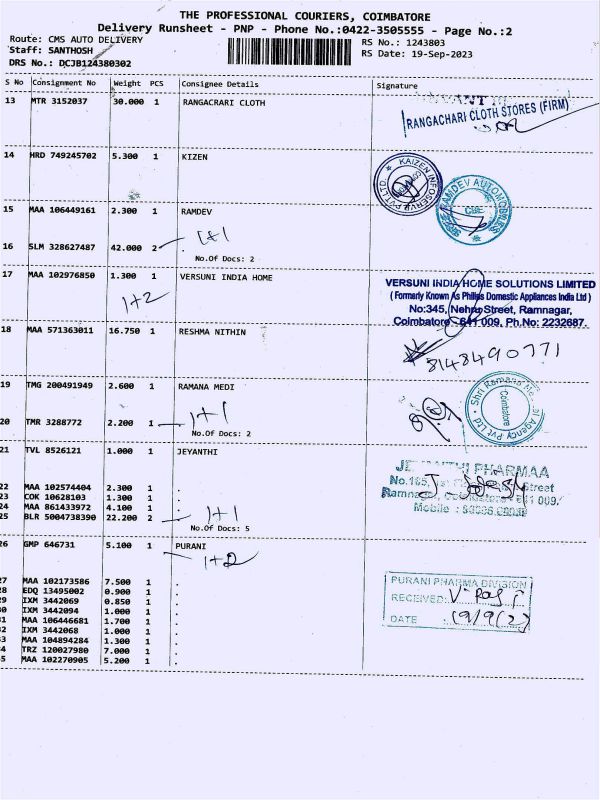 THE PROFESSIONAL COURIERS, COIMBATORE
Delivery Runsheet - PNP - Phone No.:0422-3505555 - Page No.:2
Route: CMS AUTO DELIVERY
RS No.: 1243803
Staff: SANTHOSH
RS Date: 19-Sep-2023
DRS No.: DCJB124380302
S No Consignment No Weight PCS Consignee Details Signature
13 MTR 3152037 30.000 1 RANGACRARI CLOTH
RANGACHARI CLOTH STORES (FIRM)
14 HRD 749245702 5.300 1 KIZEN
KAIZEN INFOSERVE PVT LTD
15 MAA 106449161 2.300 1 RAMDEV
RAMDEV AUTOMOBILES
CBE
16 SLM 328627487 42.000 2 .
1+1
No.Of Docs: 2
17 MAA 102976850 1.300 1 VERSUNI INDIA HOME
1+2
VERSUNI INDIA HOME SOLUTIONS LIMITED
( Formerly Known As Philips Domestic Appliances India Ltd )
No:345, Nehru Street, Ramnagar,
Coimbatore - 641 009. Ph.No: 2232687.
18 MAA 571363011 16.750 1 RESHMA NITHIN
8148490771
19 TMG 200491949 2.600 1 RAMANA MEDI
Shri Ramana Medical Agency Pvt Ltd
Coimbatore
20 TMR 3288772 2.200 1
1+1
No.Of Docs: 2
21 TVL 8526121 1.000 1 JEYANTHI
PHARMAA
Street
Coimbatore - 641 009.
Mobile :
22 MAA 102574404 2.300 1 .
23 COK 10628103 1.300 1 .
24 MAA 861433972 4.100 1 .
25 BLR 5004738390 22.200 2 .
1+1
No.Of Docs: 5
26 GMP 646731 5.100 1 PURANI
1+2
PURANI PHARMA DIVISION
RECEIVED:
DATE :
27 MAA 102173586 7.500 1 .
28 EDQ 13495002 0.900 1 .
29 IXM 3442069 0.850 1 .
30 IXM 3442094 1.000 1 .
31 MAA 106446681 1.700 1 .
32 IXM 3442068 1.000 1 .
33 MAA 104894284 1.300 1 .
34 TRZ 120027980 7.000 1 .
35 MAA 102270905 5.200 1 .